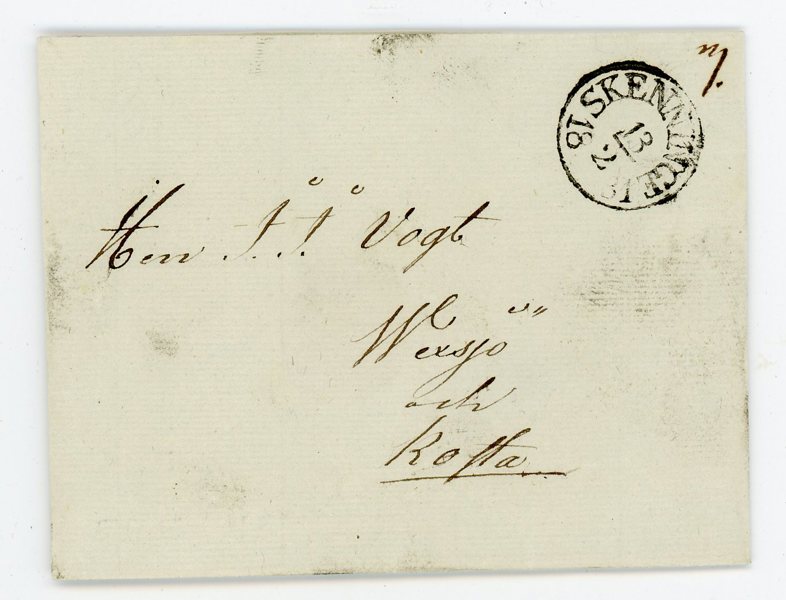 SKENNINGE
13
2
Herr J. J. Vogt
Wexsjö
och
Kosta